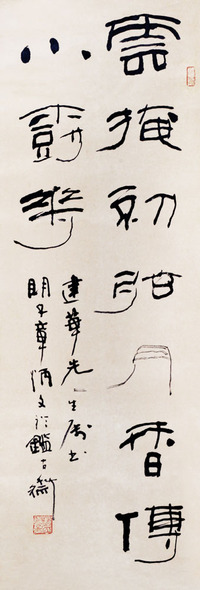 雲掩初弦月香傳
小樹華
建華先生屬書
明子章炳文於鑑古齋